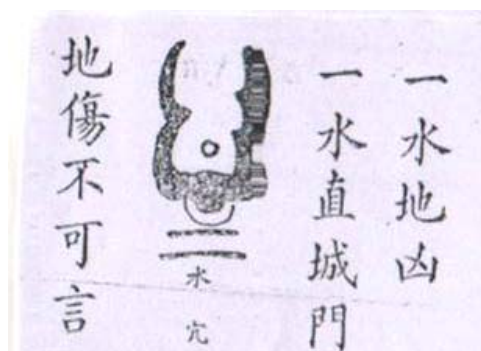 一水地凶
一水直城門
水
穴
地傷不可言